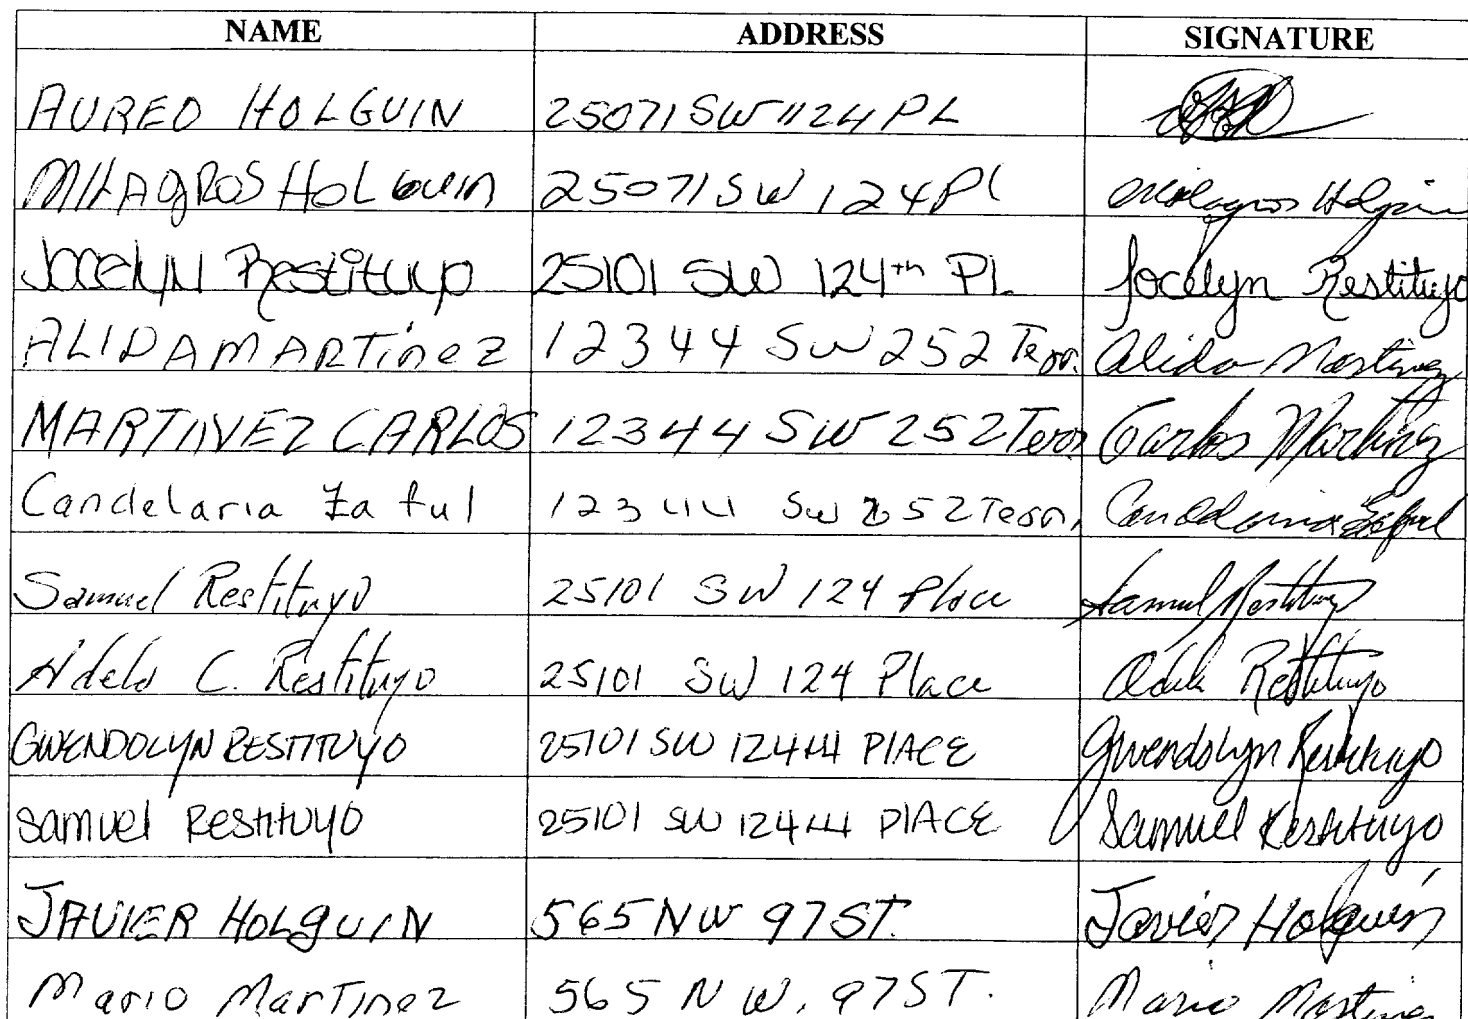 NAME ADDRESS SIGNATURE
AUREO HOLGUIN 25071 SW 124 PL
MILAGROS HOLGUIN 25071 SW 124 Pl Milagros Holguin
Jocelyn Restituyo 25101 SW 124th Pl. Jocelyn Restituyo
ALIDA MARTinez 12344 SW 252 Terr. Alida Martinez
MARTINEZ CARLOS 12344 SW 252 Terr Carlos Martinez
Candelaria Zaful 12344 SW 252 Terr. Candelaria Zaful
Samuel Restituyo 25101 SW 124 Place Samuel Restituyo
Adela C. Restituyo 25101 SW 124 Place Adela Restituyo
GWENDOLYN RESTITUYO 25101 SW 124th PlACE Gwendolyn Restituyo
Samuel RESTITUYO 25101 SW 124th PlACE Samuel Restituyo
JAVIER HOLguIN 565 NW 97 ST. Javier Holguin
Mario MarTinez 565 N W. 97 ST. Mario Martinez